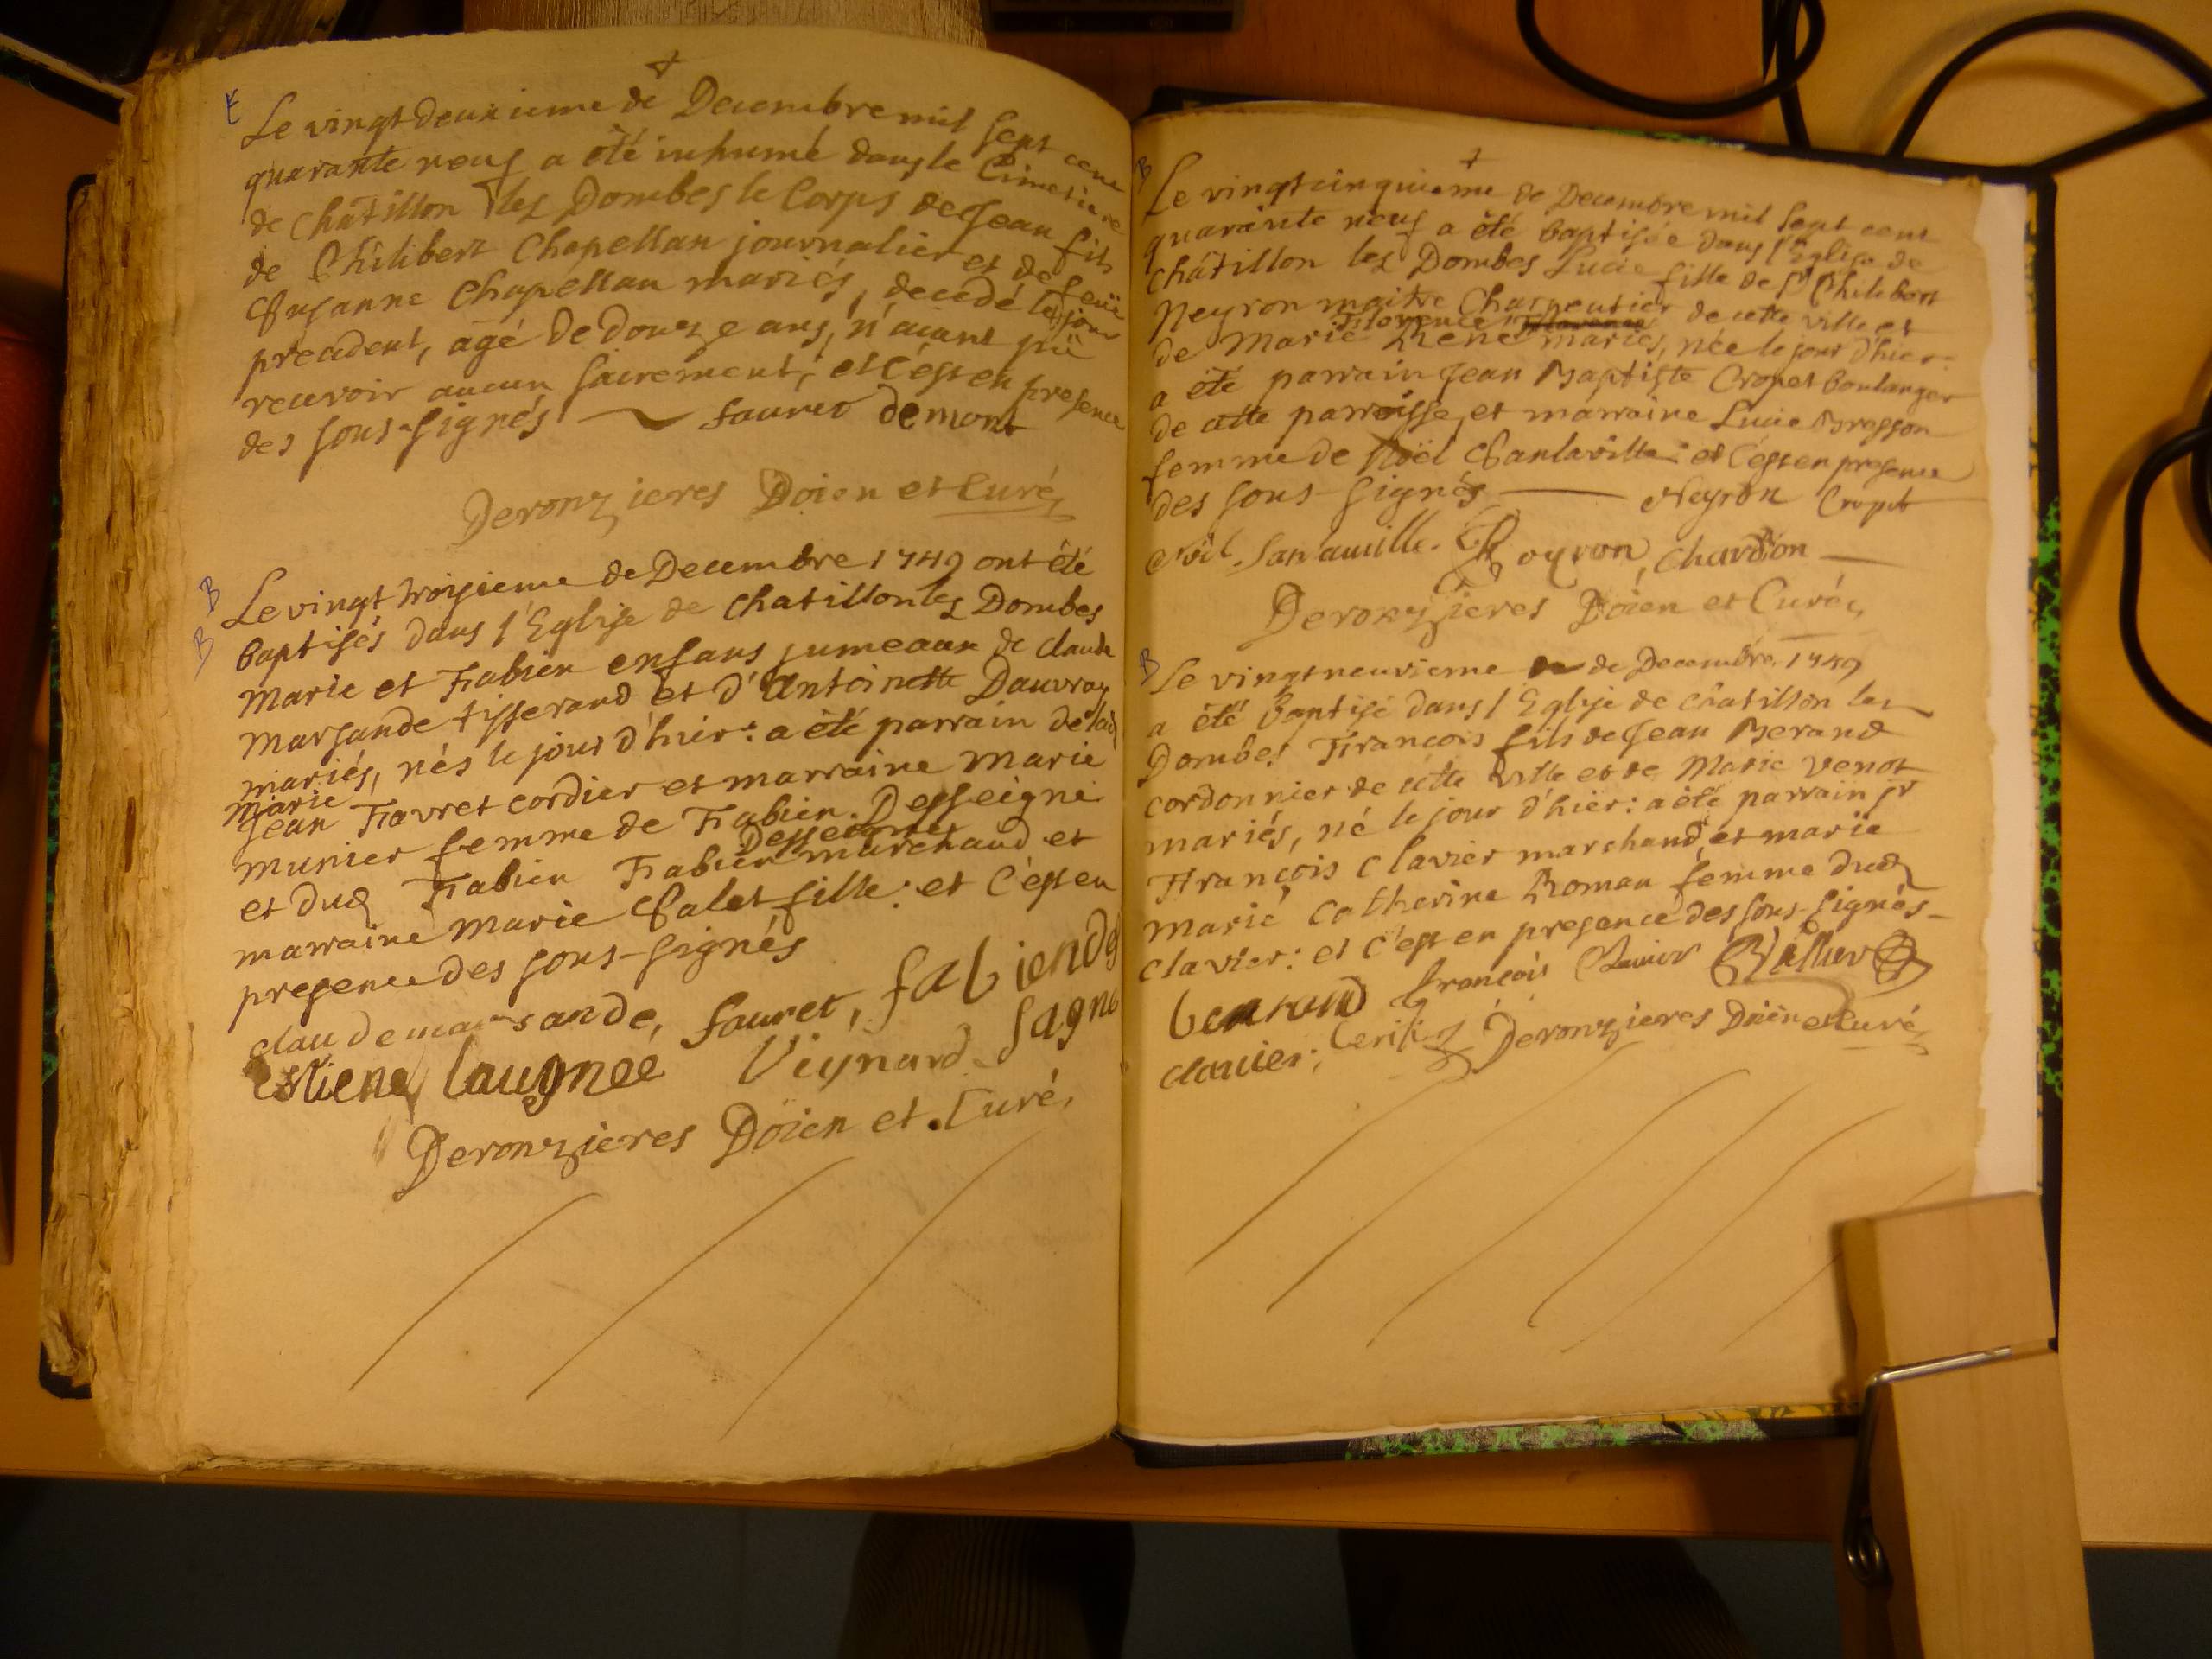 E
Le vingt deuxieme de Decembre mil sept cent
quarante neuf a été inhumé dans le Cimetiere
de chatillon les Dombes le Corps de Jean fils
de Philibert Chapellan journalier et de feüe
Susanne Chapellan mariés, decedé le jour
precedent, agé de douze ans, n'aiant pû
recevoir aucun sacrement; et c'est en presence
des sous-signés fauret demont
Deronzieres Doien et Curé,
B
B
Le vingt troisieme de Decembre 1749 ont été
baptisés dans l'Eglise de chatillon les Dombes
Marie et Fabien enfans jumeaux de claude
Marsande tisserand et d'Antoinette Dauvray
mariés, nés le jour d'hier: a été parrain de lad
Marie
Jean Favret cordier et marraine Marie
Munier femme de Fabien Desseigne
Desseigne
et dud Fabien Fabien marchand et
marraine Marie Salet fille: et c'est en
presence des sous-signés
claude marsande, fauret, fabien de
estiene laugneé Vignard sagne
Deronzieres Doien et Curé,
B
Le vingt cinquieme de Decembre mil sept cent
quarante neuf a été baptisée dans l'Eglise de
châtillon les Dombes Lucie fille de Sr Philibert
Neyron maitre Charpentier de cette ville et
Florence
de Marie René mariés, née le jour d'hier:
a été parrain Jean Baptiste Cropet boulanger
de cette parroisse, et marraine Lucie
femme de Noël Santaville: et c'est en presence
des sous-signés Neyron Cropet
Noël. Santauille. Royron, Chardon
Deronzieres Doien et Curé,
B
Le vingt neuvieme de Decembre 1749
a été baptisé dans l'Eglise de châtillon les
Dombes François fils de Jean Berand
cordonnier de cette ville et de Marie Venot
mariés, né le jour d'hier: a été parrain sr
François Clavier marchand, et marie
Marie Catherine Roman femme dud
Clavier: et c'est en presence des sous-signés
berand françois
clavier; Deronzieres Doien et Curé,